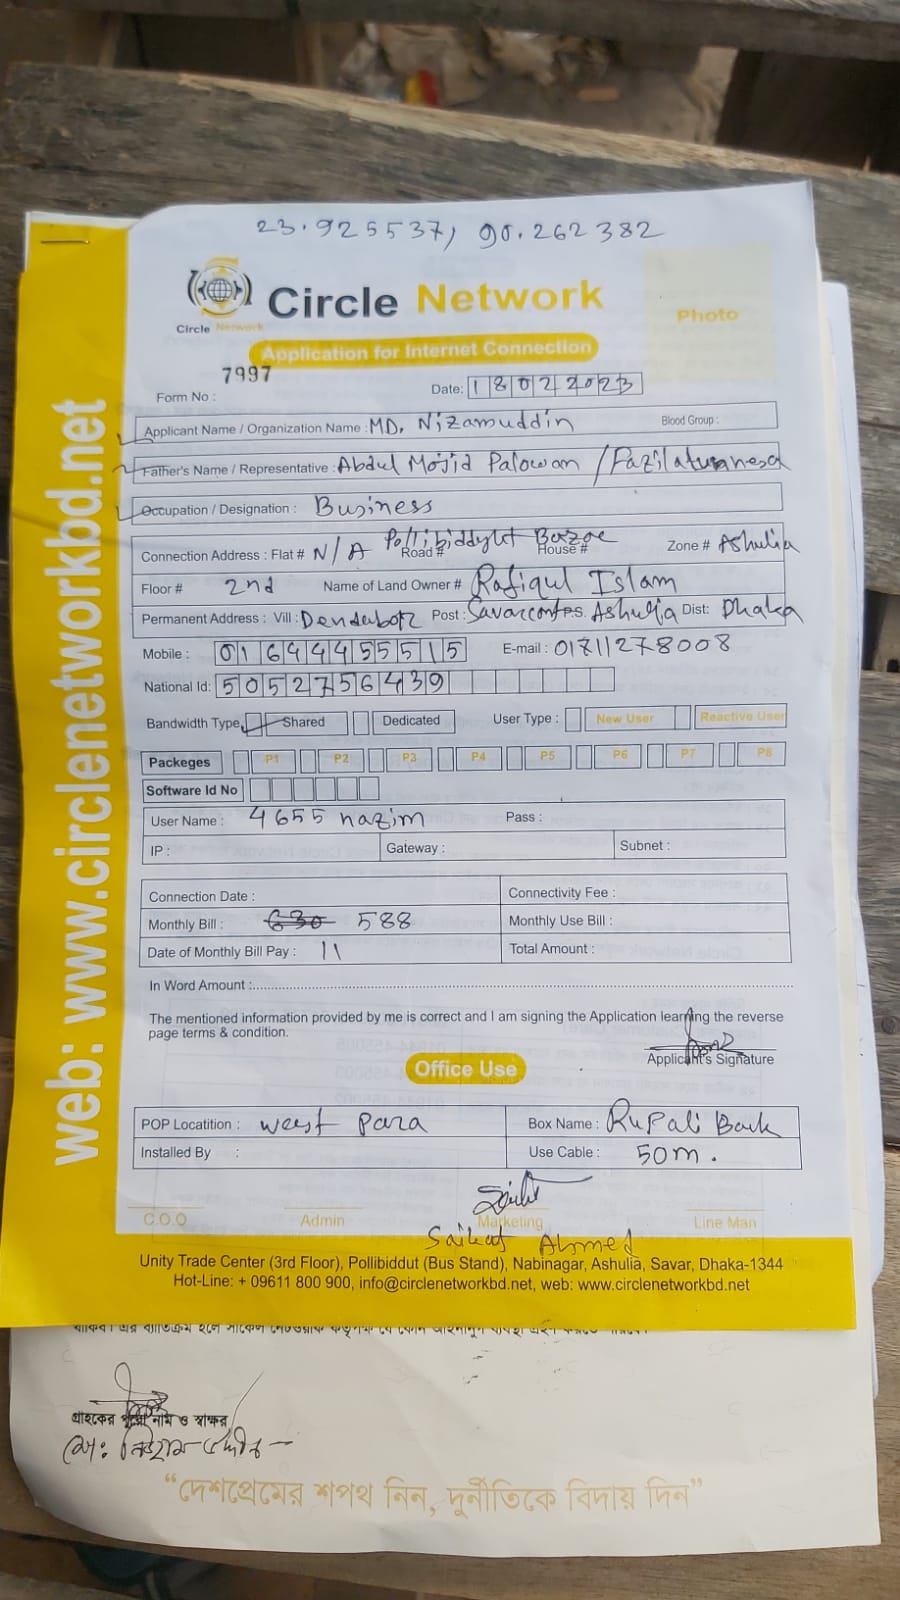 23.925537, 90.262382
Circle Network
Circle Network
Photo
Application for Internet Connection
Form No : 7997
Date: 18022023
Applicant Name / Organization Name : MD. Nizamuddin Blood Group :
Father's Name / Representative : Abdul Mojid Palowan / Fazilatunnesa
Occupation / Designation : Business
Connection Address : Flat # N/A Road # House # Zone # Ashulia
Floor # 2nd Name of Land Owner # Rafiqul Islam
Permanent Address : Vill : Dendabor Post : P.S. Ashulia Dist: Dhaka
Mobile : 01644455515 E-mail : 01711278008
National Id: 5052756439
Bandwidth Type Shared Dedicated User Type : New User Reactive User
Packeges P1 P2 P3 P4 P5 P6 P7 P8
Software Id No
User Name : 4655 nazim Pass :
IP : Gateway : Subnet :
Connection Date : Connectivity Fee :
Monthly Bill : 630 588 Monthly Use Bill :
Date of Monthly Bill Pay : 11 Total Amount :
In Word Amount :
The mentioned information provided by me is correct and I am signing the Application learning the reverse
page terms & condition.
Applicant's Signature
Office Use
POP Locatition : west para Box Name : Rupali Bank
Installed By : Use Cable : 50m.
C.O.O Admin Marketing Line Man
Saikat Ahmed
Unity Trade Center (3rd Floor), Pollibiddut (Bus Stand), Nabinagar, Ashulia, Savar, Dhaka-1344
Hot-Line: + 09611 800 900, info@circlenetworkbd.net, web: www.circlenetworkbd.net
web: www.circlenetworkbd.net
গ্রাহকের পুরো নাম ও স্বাক্ষর
“দেশপ্রেমের শপথ নিন, দুর্নীতিকে বিদায় দিন”